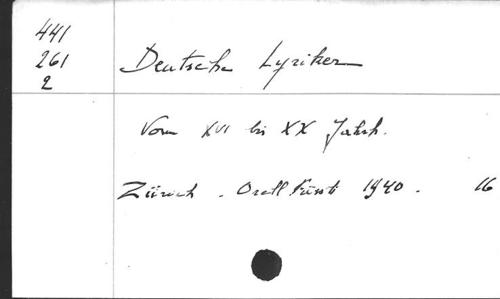 441
261
2
Deutsche Lyriker
Vom XVI bis XX Jahrh.
Zürich . Orell Füssli 1940 . 16